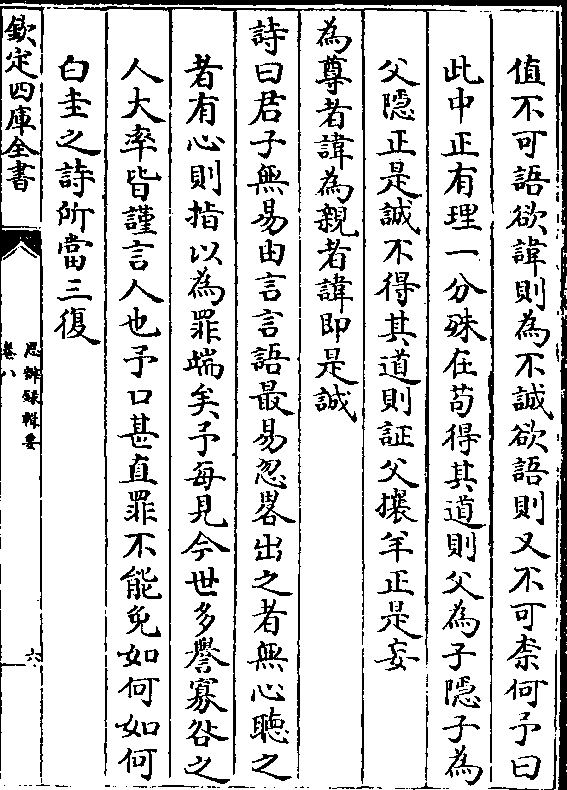 值不可語欲諱則為不誠欲語則又不可柰何予曰
此中正有理一分殊在茍得其道則父為子隠子為
父隠正是誠不得其道則証父攘羊正是妄
為尊者諱為親者諱即是誠
詩曰君子無易由言言語最易忽畧出之者無心聴之
者有心則指以為罪端矣予每見今世多譽寡咎之
人大率皆謹言人也予口甚直罪不能免如何如何
白圭之詩所當三復
欽定四庫全書
思辨録輯要
卷八
六